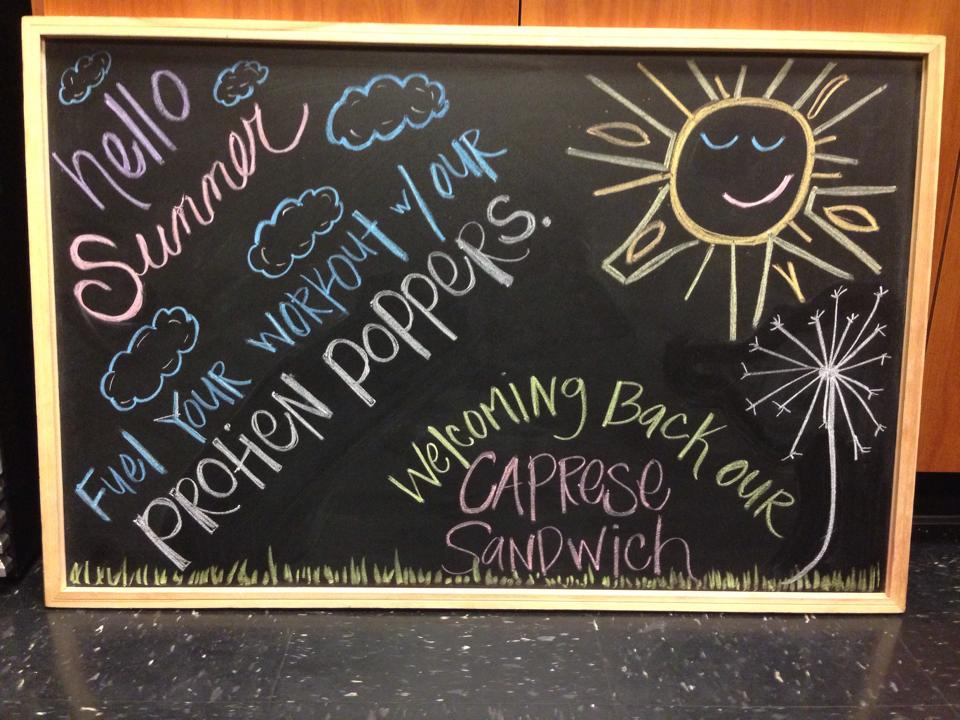 hello
Summer
Fuel Your workout w/ our
protien poppers.
Welcoming Back our
Caprese
Sandwich